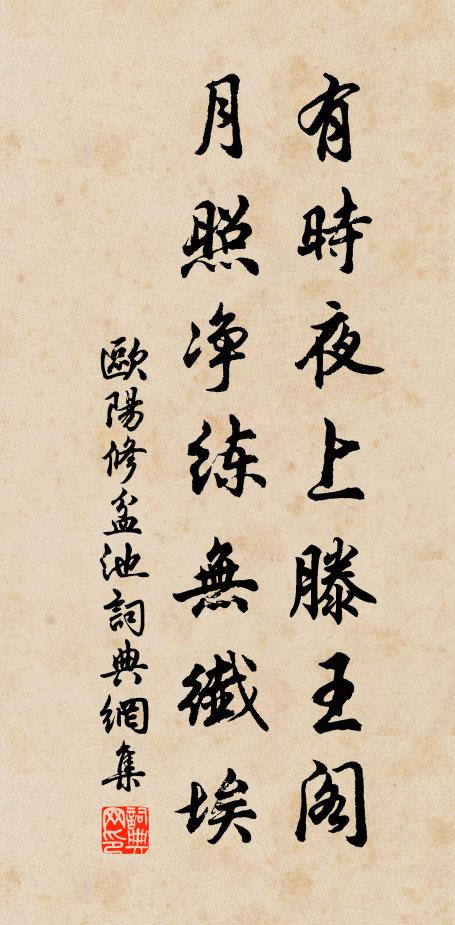 有時夜上滕王阁
月照净练無纖埃
歐陽修盆池詞典網集
詞典网印